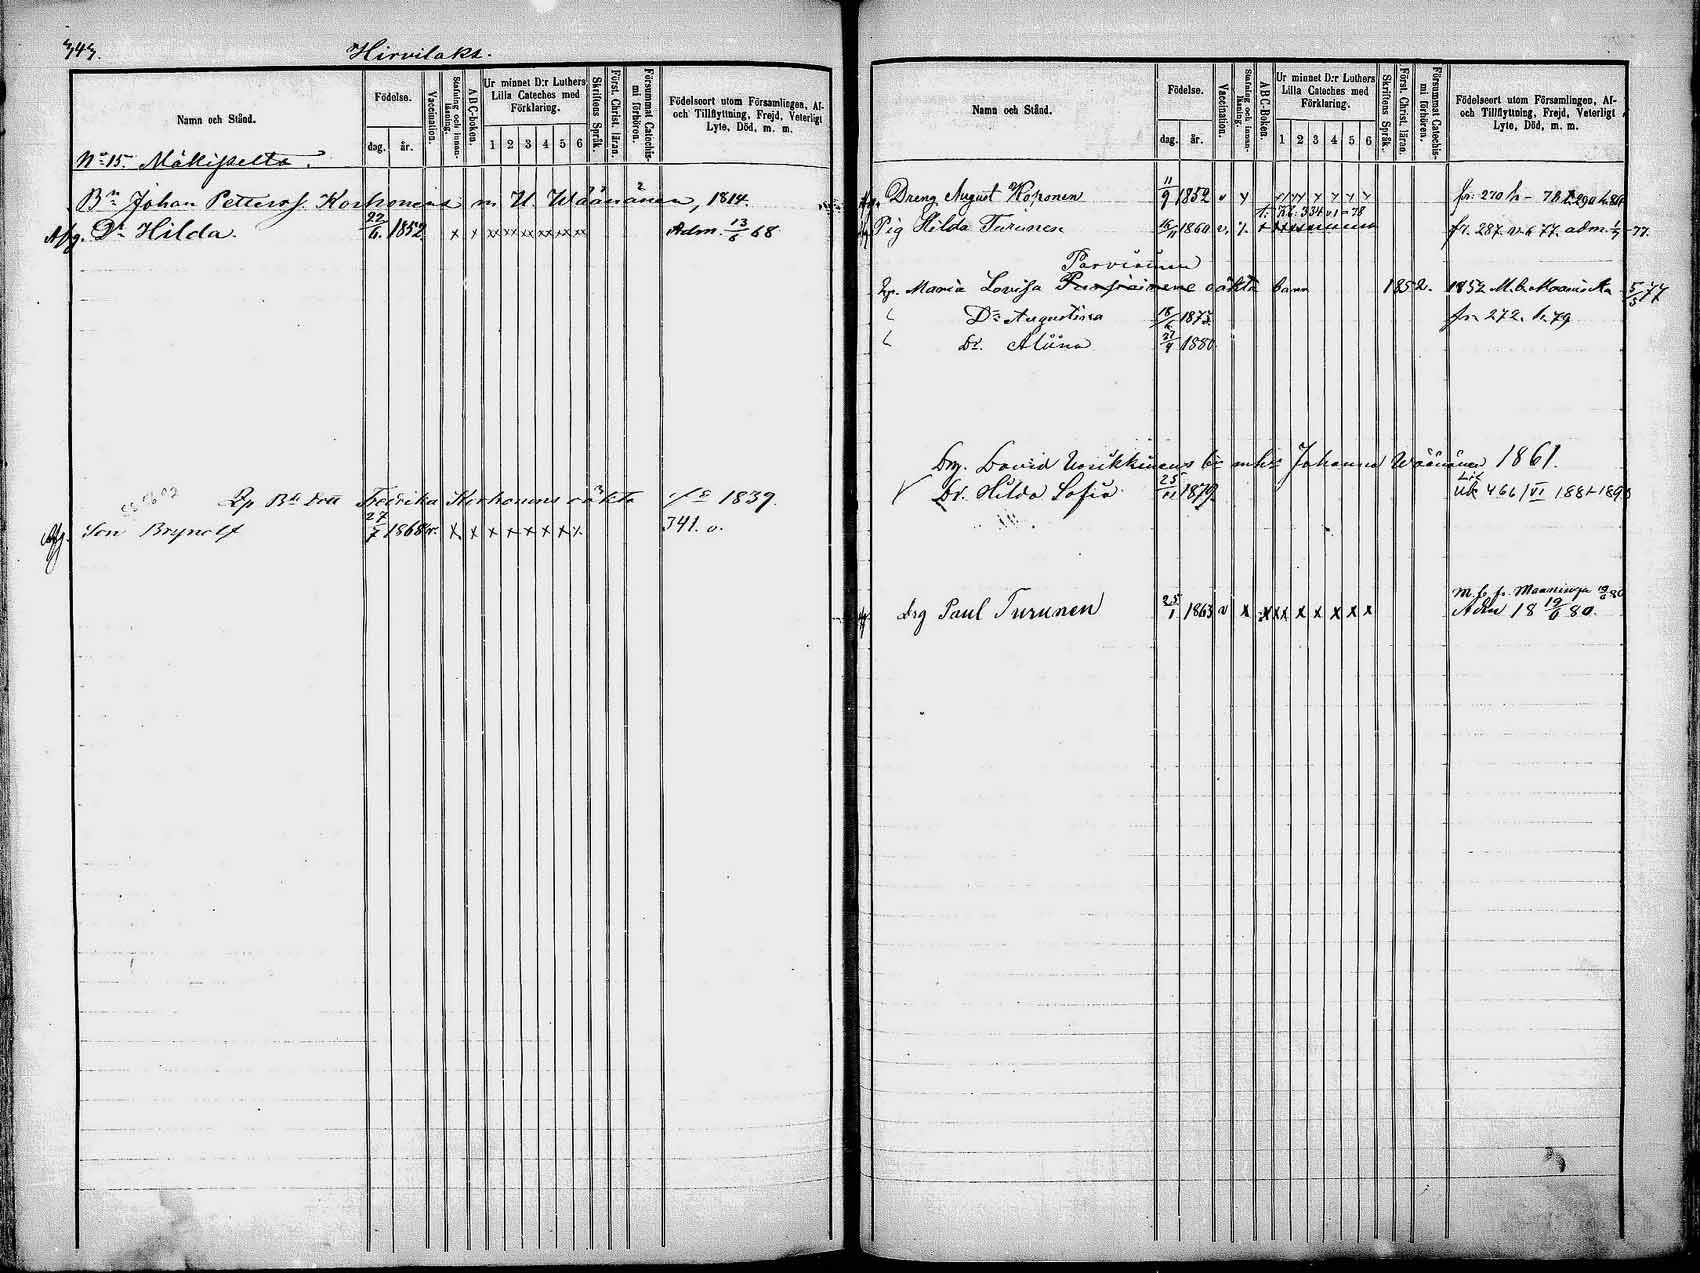 343.
Hirvilaks.
Namn och Stånd.
Födelse.
dag. år.
Vaccination.
Stafning och innan-läsning.
ABC-boken.
Ur minnet D:r Luthers Lilla Cateches med Förklaring.
1 2 3 4 5 6
Skriftens Språk.
Först. Christ. läran.
Försummat Catechis-mi förhören.
Födelseort utom Församlingen, Af- och Tillflyttning, Frejd, Veterligt Lyte, Död, m. m.
No 15. Mäkipelto.
Bn Johan Petterss. Korhonens m U. Wäänänen, 1814.
Afg. Dr Hilda. 22/6. 1852 x x xx xx xx xx xx xx Adm. 13/6 68
Bn Dott Fredrika Korhonens oäkta 1839.
Afg. Son Brynolf 27/7 1868 v. x x x x x x x x 341. v.
Namn och Stånd.
Födelse.
dag. år.
Vaccination.
Stafning och innan-läsning.
ABC-Boken.
Ur minnet D:r Luthers Lilla Cateches med Förklaring.
1 2 3 4 5 6
Skriftens Språk.
Först. Christ. läran.
Försummat Catechis-mi förhören.
Födelseort utom Församlingen, Af- och Tillflyttning, Frejd, Veterligt Lyte, Död, m. m.
Dreng August Koponen 11/9 1852 v
fr. 270 h - 78
Pig Hilda Turunen 1860 v.
fr. 287. v. 77. adm. 77.
Parviainen
Maria Lovisa oäkta barn 1852. 1852 M.b. Maaninka 5/5 77
Dr Augustina 18 1875. fr. 272. h. 79
Dr. Alina 1880
Drg. David mhu Johanna Wäänänen 1861.
Dr. Hilda Sofia 25/11 1879 466/VI 1881-1890
drg Paul Turunen 25/1 1863 v x x xx x x x x x
M. b. fr. Maaninga 80
Adm 18 19/6 80.